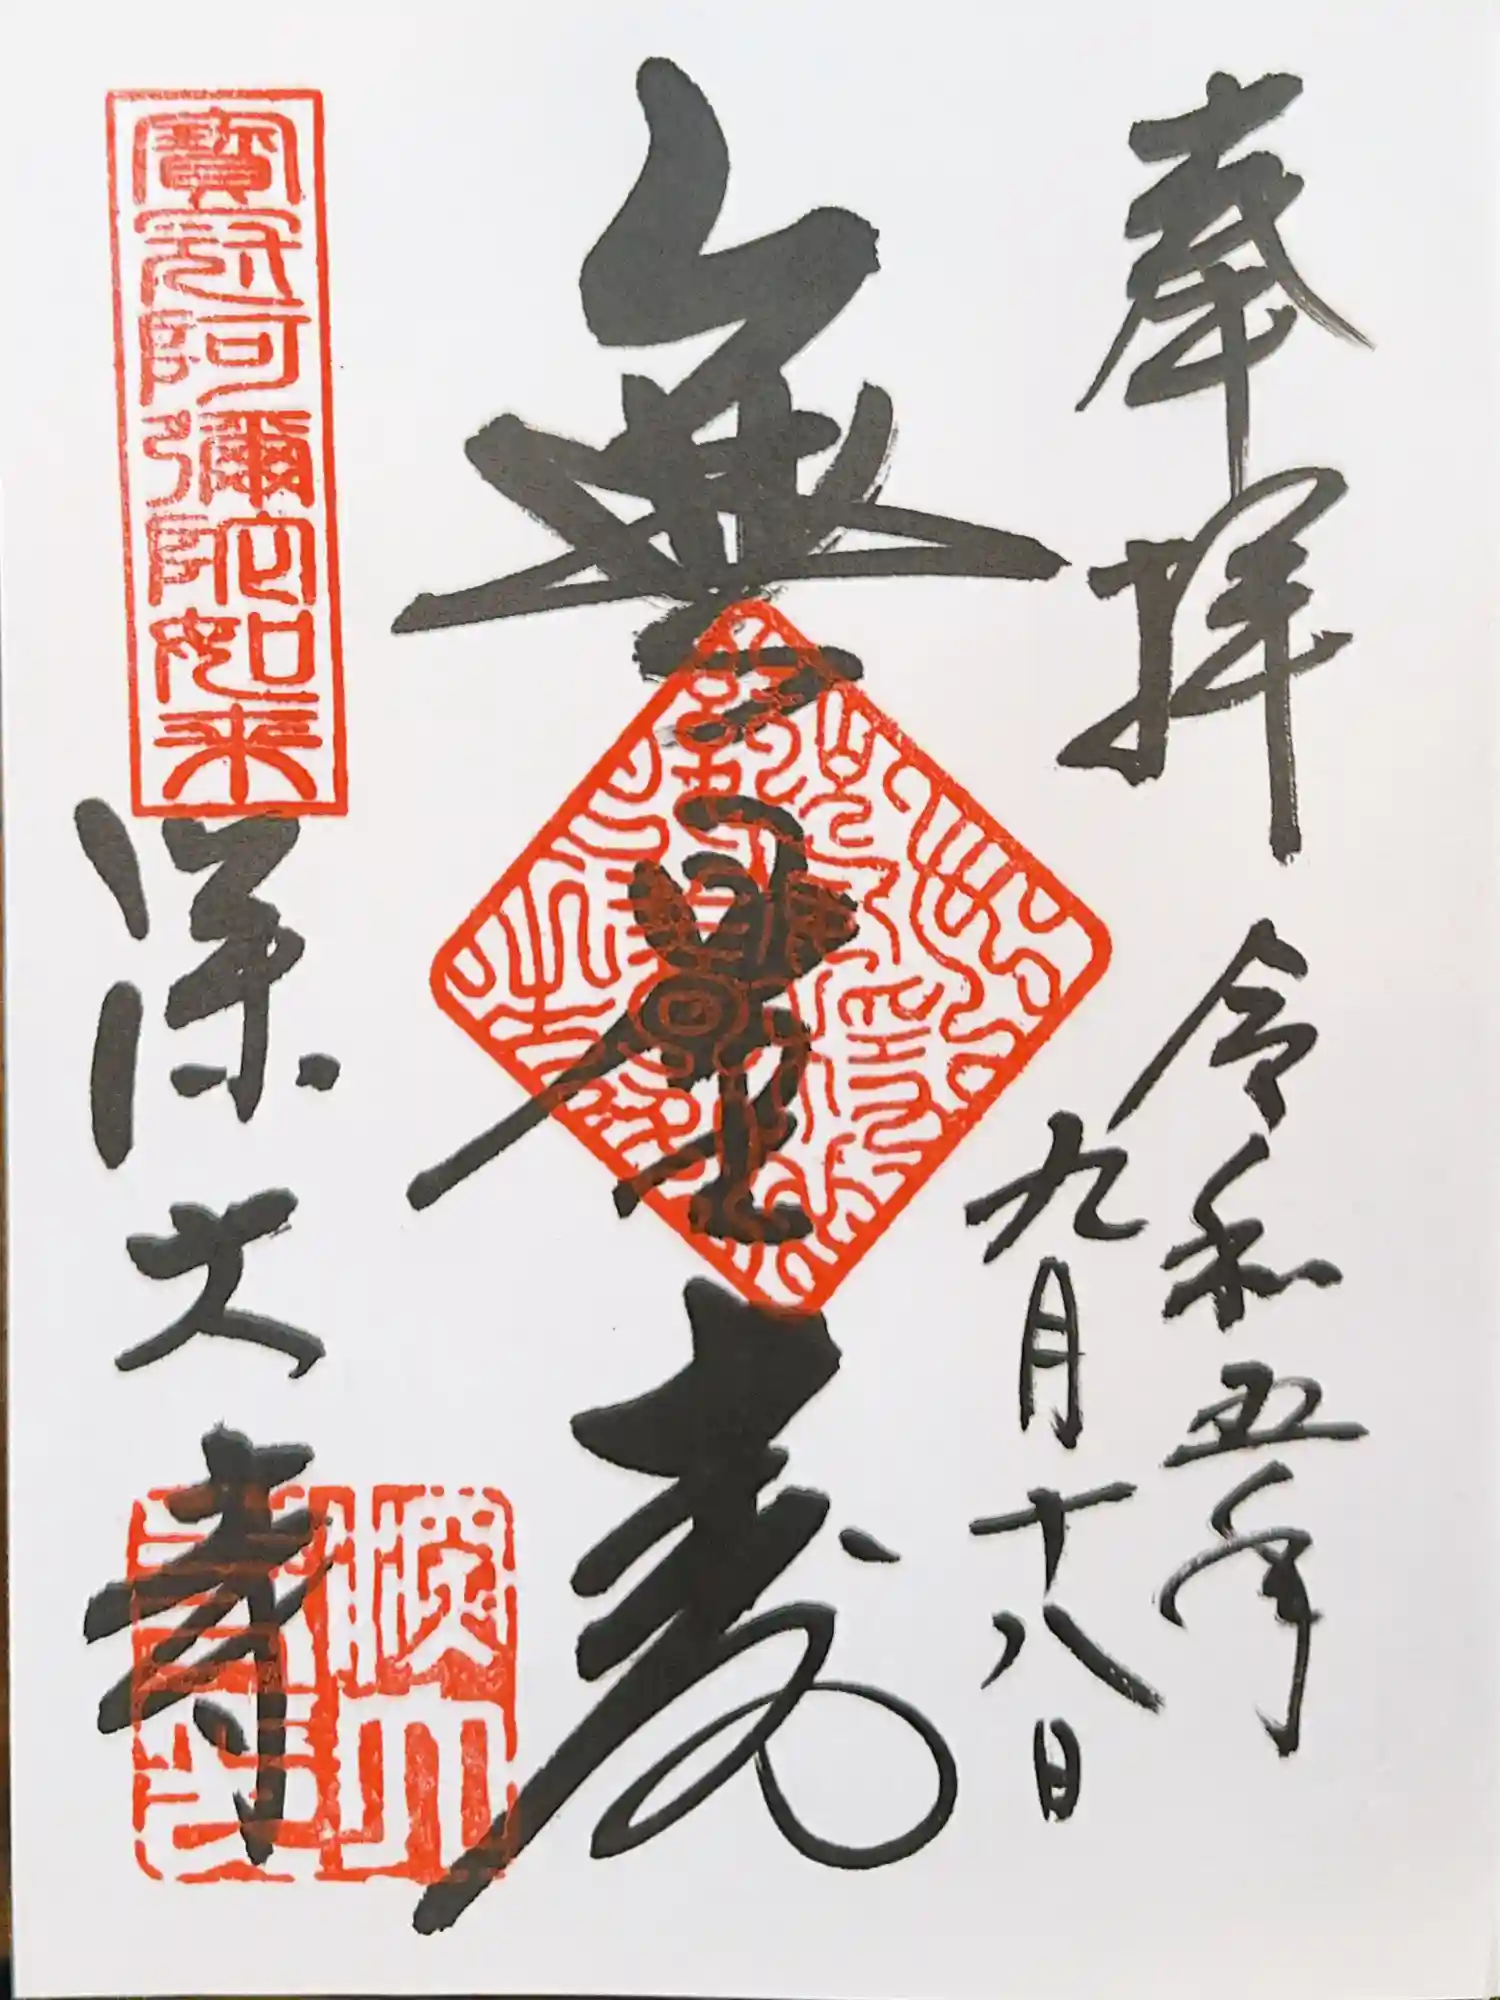 奉拝
令和五年
九月十八日
無量壽
寶冠阿彌陀如来
深大寺
深大寺